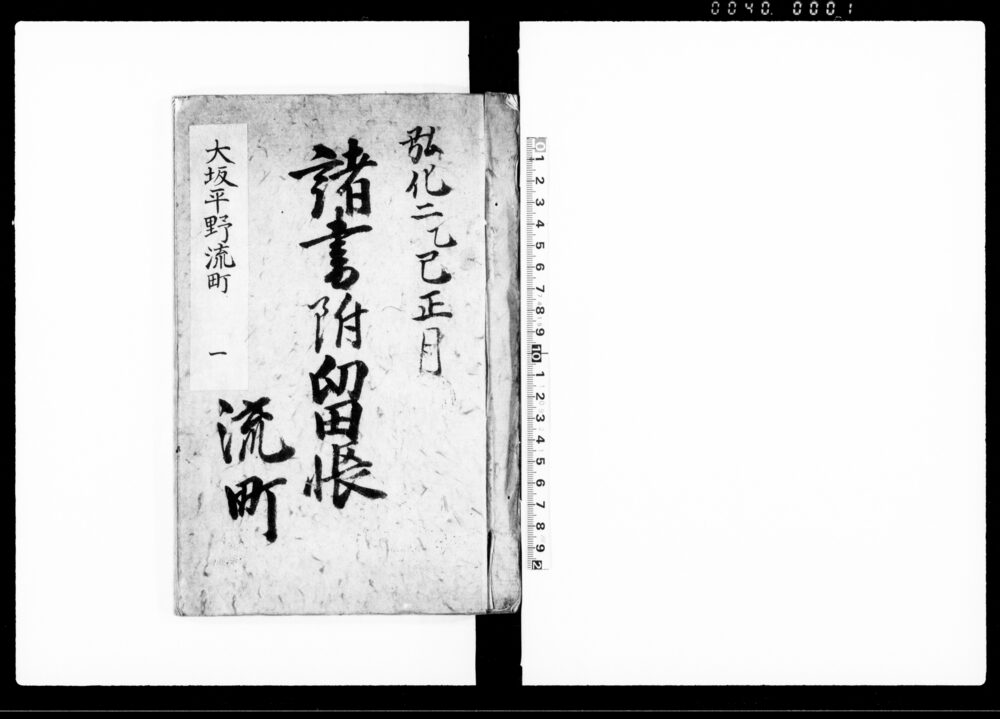 0040. 0001
弘化二乙巳正月
諸書附留帳
流町
大坂平野流町 一
0 1 2 3 4 5 6 7 8 9 10 1 2 3 4 5 6 7 8 9 2